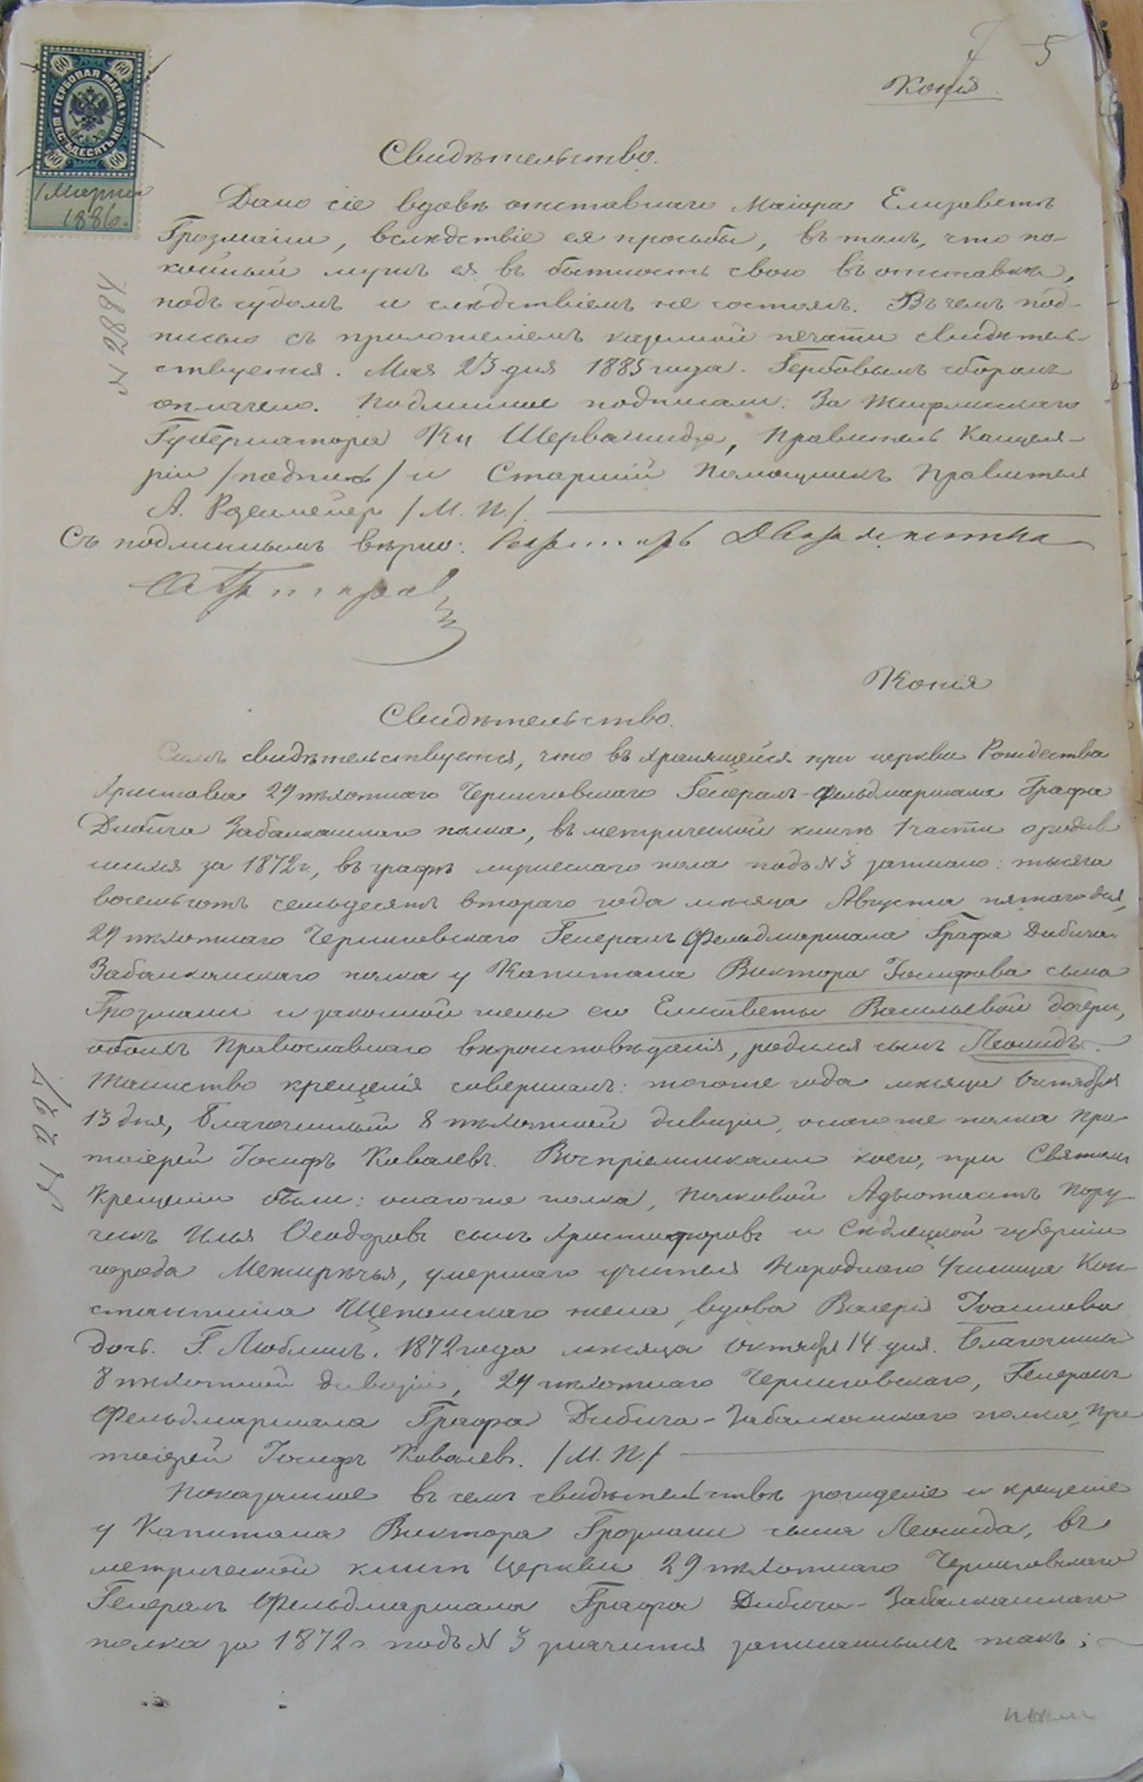 5
Копія
ГЕРБОВАЯ МАРКА
ШЕСТЬДЕСЯТЪ КОП.
60 60
60 60
1 Марта
1886.
№ 2884
Свидѣтельство.
Дано сіе вдовѣ отставнаго Маіора Елизаветѣ
Грозмани, вслѣдствіе ея просьбы, въ томъ, что по-
койный мужъ ея въ бытность свою въ отставкѣ,
подъ судомъ и слѣдствіемъ не состоялъ. Въ чемъ под-
писью съ приложеніемъ казенной печати свидѣтель-
ствуется. Мая 23 дня 1885 года. Гербовымъ сборомъ
оплачено. Подлинное подписали: За Тифлисскаго
Губернатора Кн Шервашидзе, Правитель Канцеля-
ріи /подпись/ и Старшій Помощникъ Правителя
А. /М. П./
Съ подлиннымъ вѣрно:
Копія
Свидѣтельство.
Симъ свидѣтельствуется, что въ хранящейся при церкви Рождества
Христова 29 пѣхотнаго Черниговскаго Генералъ-Фельдмаршала Графа
Дибича Забалканскаго полка, въ метрической книгѣ 1 части о родив
шихся за 1872 г, въ графѣ мужескаго пола подъ № 3 записано: тысяча
восемьсотъ семьдесятъ втораго года мѣсяца Августа пятаго дня,
29 пѣхотнаго Черниговскаго Генералъ Фельдмаршала Графа Дибича
Забалканскаго полка у Капитана Виктора Іосифова сына
Грозмани и законной жены его Елисаветы Васильевой дочери,
обоихъ Православнаго вѣроисповѣданія, родился сынъ Леонидъ.
Таинство крещенія совершалъ: тогоже года мѣсяца Октября
13 дня, Благочинный 8 пѣхотной дивизіи, онагоже полка Про
тоіерей Іосифъ Ковалевъ. Воспріемниками коего, при Святомъ
Крещеніи были: онагоже полка, Полковой Адъютантъ Пору
чикъ Илья Ѳеодоровъ сынъ Христофоровъ и Сѣдлецкой губерніи
города Межирѣчья, умершаго учителя Народнаго Училища Кон
стантина жена, вдова Валерія Іоаннова
дочь. Г. Люблинъ. 1872 года мѣсяца Октября 14 дня. Благочинный
8 пѣхотной дивизіи, 29 пѣхотнаго Черниговскаго, Генералъ
Фельдмаршала Графа Дибича-Забалканскаго полка, Про
тоіерей Іосифъ Ковалевъ. /М. П./
Показанное въ семъ свидѣтельствѣ рожденіе и крещеніе
у Капитана Виктора Грозмани сына Леонида, въ
метрической книгѣ Церкви 29 пѣхотнаго Черниговскаго
Генералъ Фельдмаршала Графа Дибича-Забалканскаго
полка за 1872 г. подъ № 3 значится записаннымъ такъ;